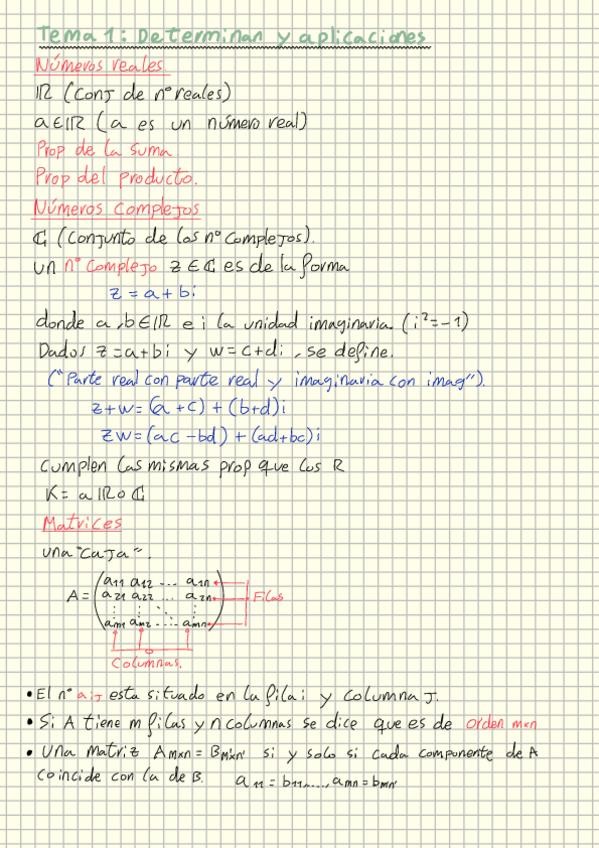 Tema 1: Determinan y aplicaciones
Números reales
ℝ (Conj de nº reales)
a∈ℝ (a es un número real)
Prop de la suma.
Prop del producto.
Números Complejos
ℂ (Conjunto de los nº Complejos).
un nº Complejo z∈ℂ es de la forma
z = a + bi
donde a,b∈ℝ e i la unidad imaginaria. (i²=-1)
Dados z=a+bi y w=c+di, se define.
("Parte real con parte real y imaginaria con imag").
z+w=(a+c)+(b+d)i
zw=(ac-bd)+(ad+bc)i
Cumplen las mismas prop que los R
K= a ℝ o ℂ
Matrices
una "Caja".
a11 a12 ... a1n
A= a21 a22 ... a2n Filas
am1 am2 ... amn
Columnas.
• El nº aij esta situado en la fila i y columna j.
• Si A tiene m filas y n columnas se dice que es de orden mxn
• Una matriz Amxn = Bm'xn' si y solo si cada componente de A
Coincide con la de B. a11 = b11,..., amn = bmn'